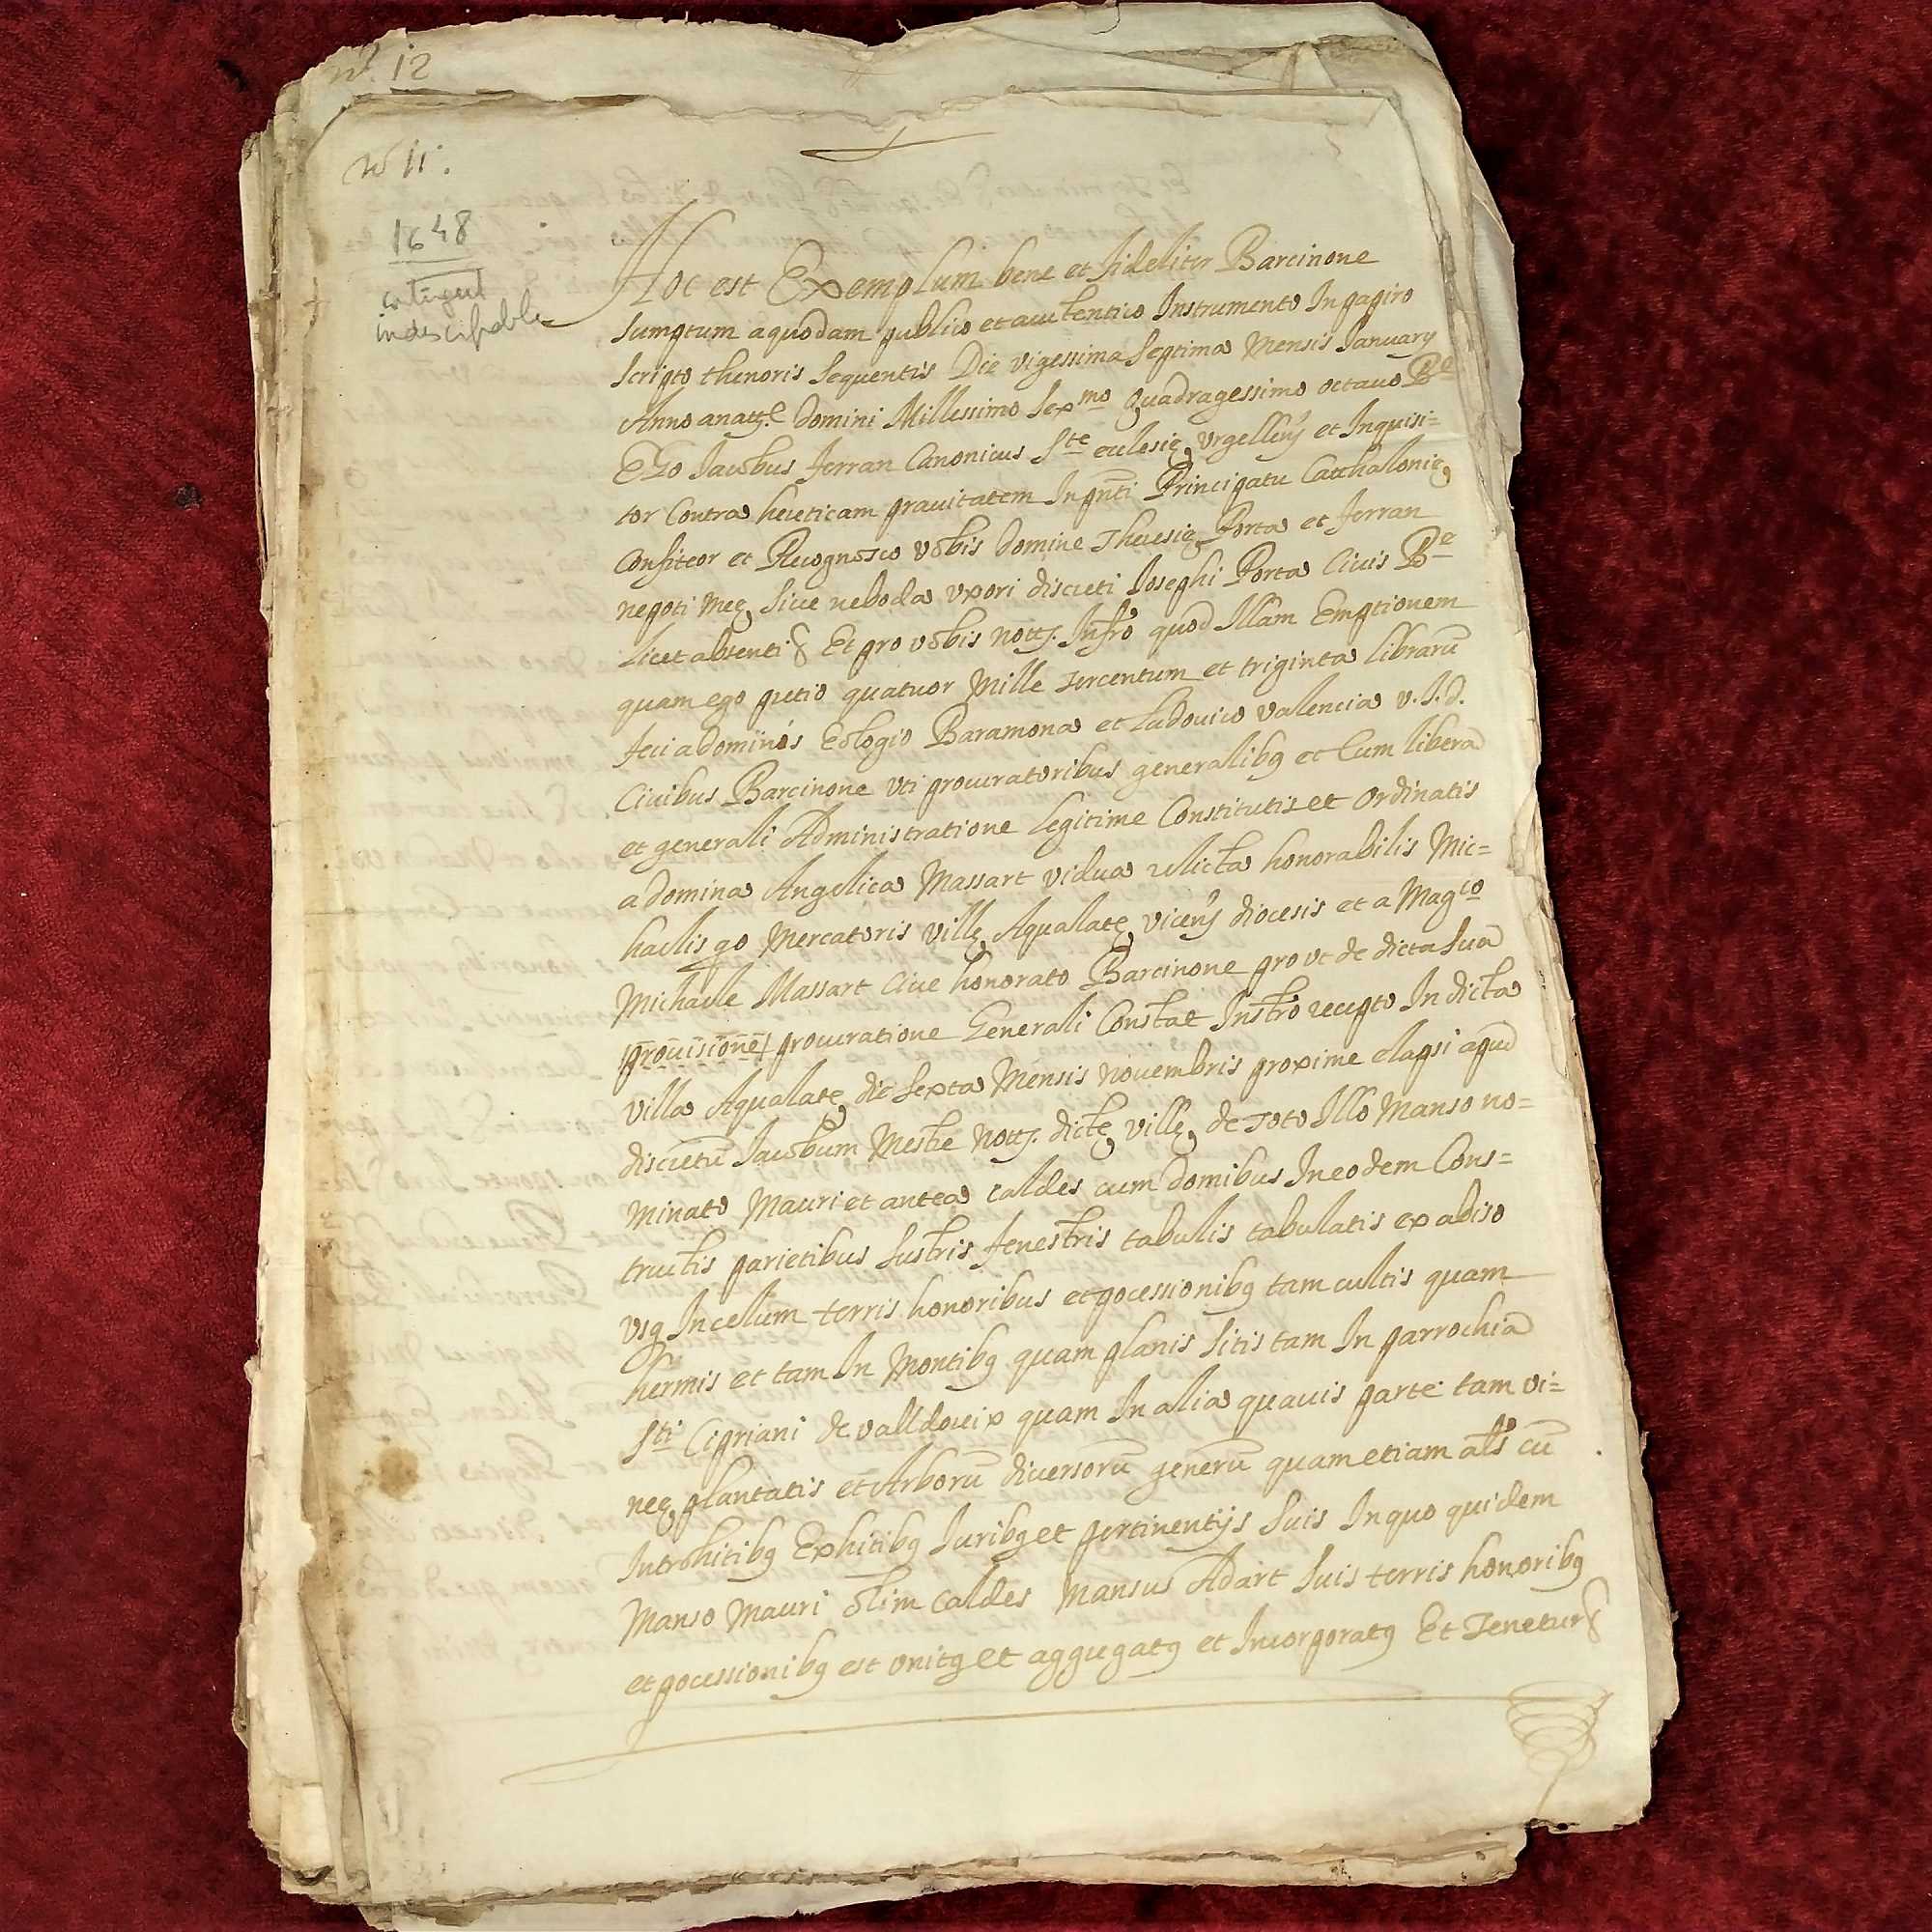 nº. 12
nº 11.
1648
contingut
indescifrable
Hoc est Exemplum bene et fideliter Barcinone
sumptum a quodam publico et auctentico Instrumento In papiro
scripto thenoris sequentis Die vigessima septima Mensis January
Anno a natte. domini Millessimo sexmo quadragessimo octavo Be
Ego Jacobus ferran Canonicus Ste eclesie, Urgelleñ et Inquisi=
tor Contra hereticam pravitatem In pñti Principatu Catthalonie,
Confiteor et Recognosco vobis domine Theresie Porta et ferran
nepoti mee, sive neboda uxori discreti Josephi Porta Civis Be
licet absenti & Et pro vobis notty. Infro quod Illam Emptionem
quam ego pretio quatuor Mille tercentum et triginta librarū
feci a dominos Eologio Baramona et Ludovico valencia v.J.d.
Civibus Barcinone uti procuratoribus generalibg et Cum libera
et generali Administratione legitime Constitutis et ordinatis
a domina Angelica Massart vidua relicta honorabilis Mic=
haelis qo Mercatoris ville, Aqualate, viceñ diocesis et a Magco
Michaele Massart Cive honorato Barcinone pro ut de dicta sua
provisione procuratione Generali Constat Instro recepto In dicta
villa Aqualate, die sexta Mensis novembris proxime elapsi apud
discretū Jacobum Mestre notty. dicte, ville, de toto Illo Manso no=
minato Mauri et antea Caldes cum domibus In eodem Cons=
tructis parietibus sustris fenestris tabulis tabulatis ex abiso
usq In celum terris honoribus et pocessionibg tam cultis quam
hermis et tam In Montibg quam planis sitis tam In parrochia
Sti Cipriani de valldoreix quam In alia quavis parte tam vi=
nee, plantatis et Arborū diversorū generū quam etiam als cū
Introhitibg Exhitibg Juribg et pertinentijs suis In quo quidem
Manso Mauri olim Caldes Mansus Adart suis terris honoribg
et pocessionibg est unitg et aggregatg et Incorporatg Et Tenetur &